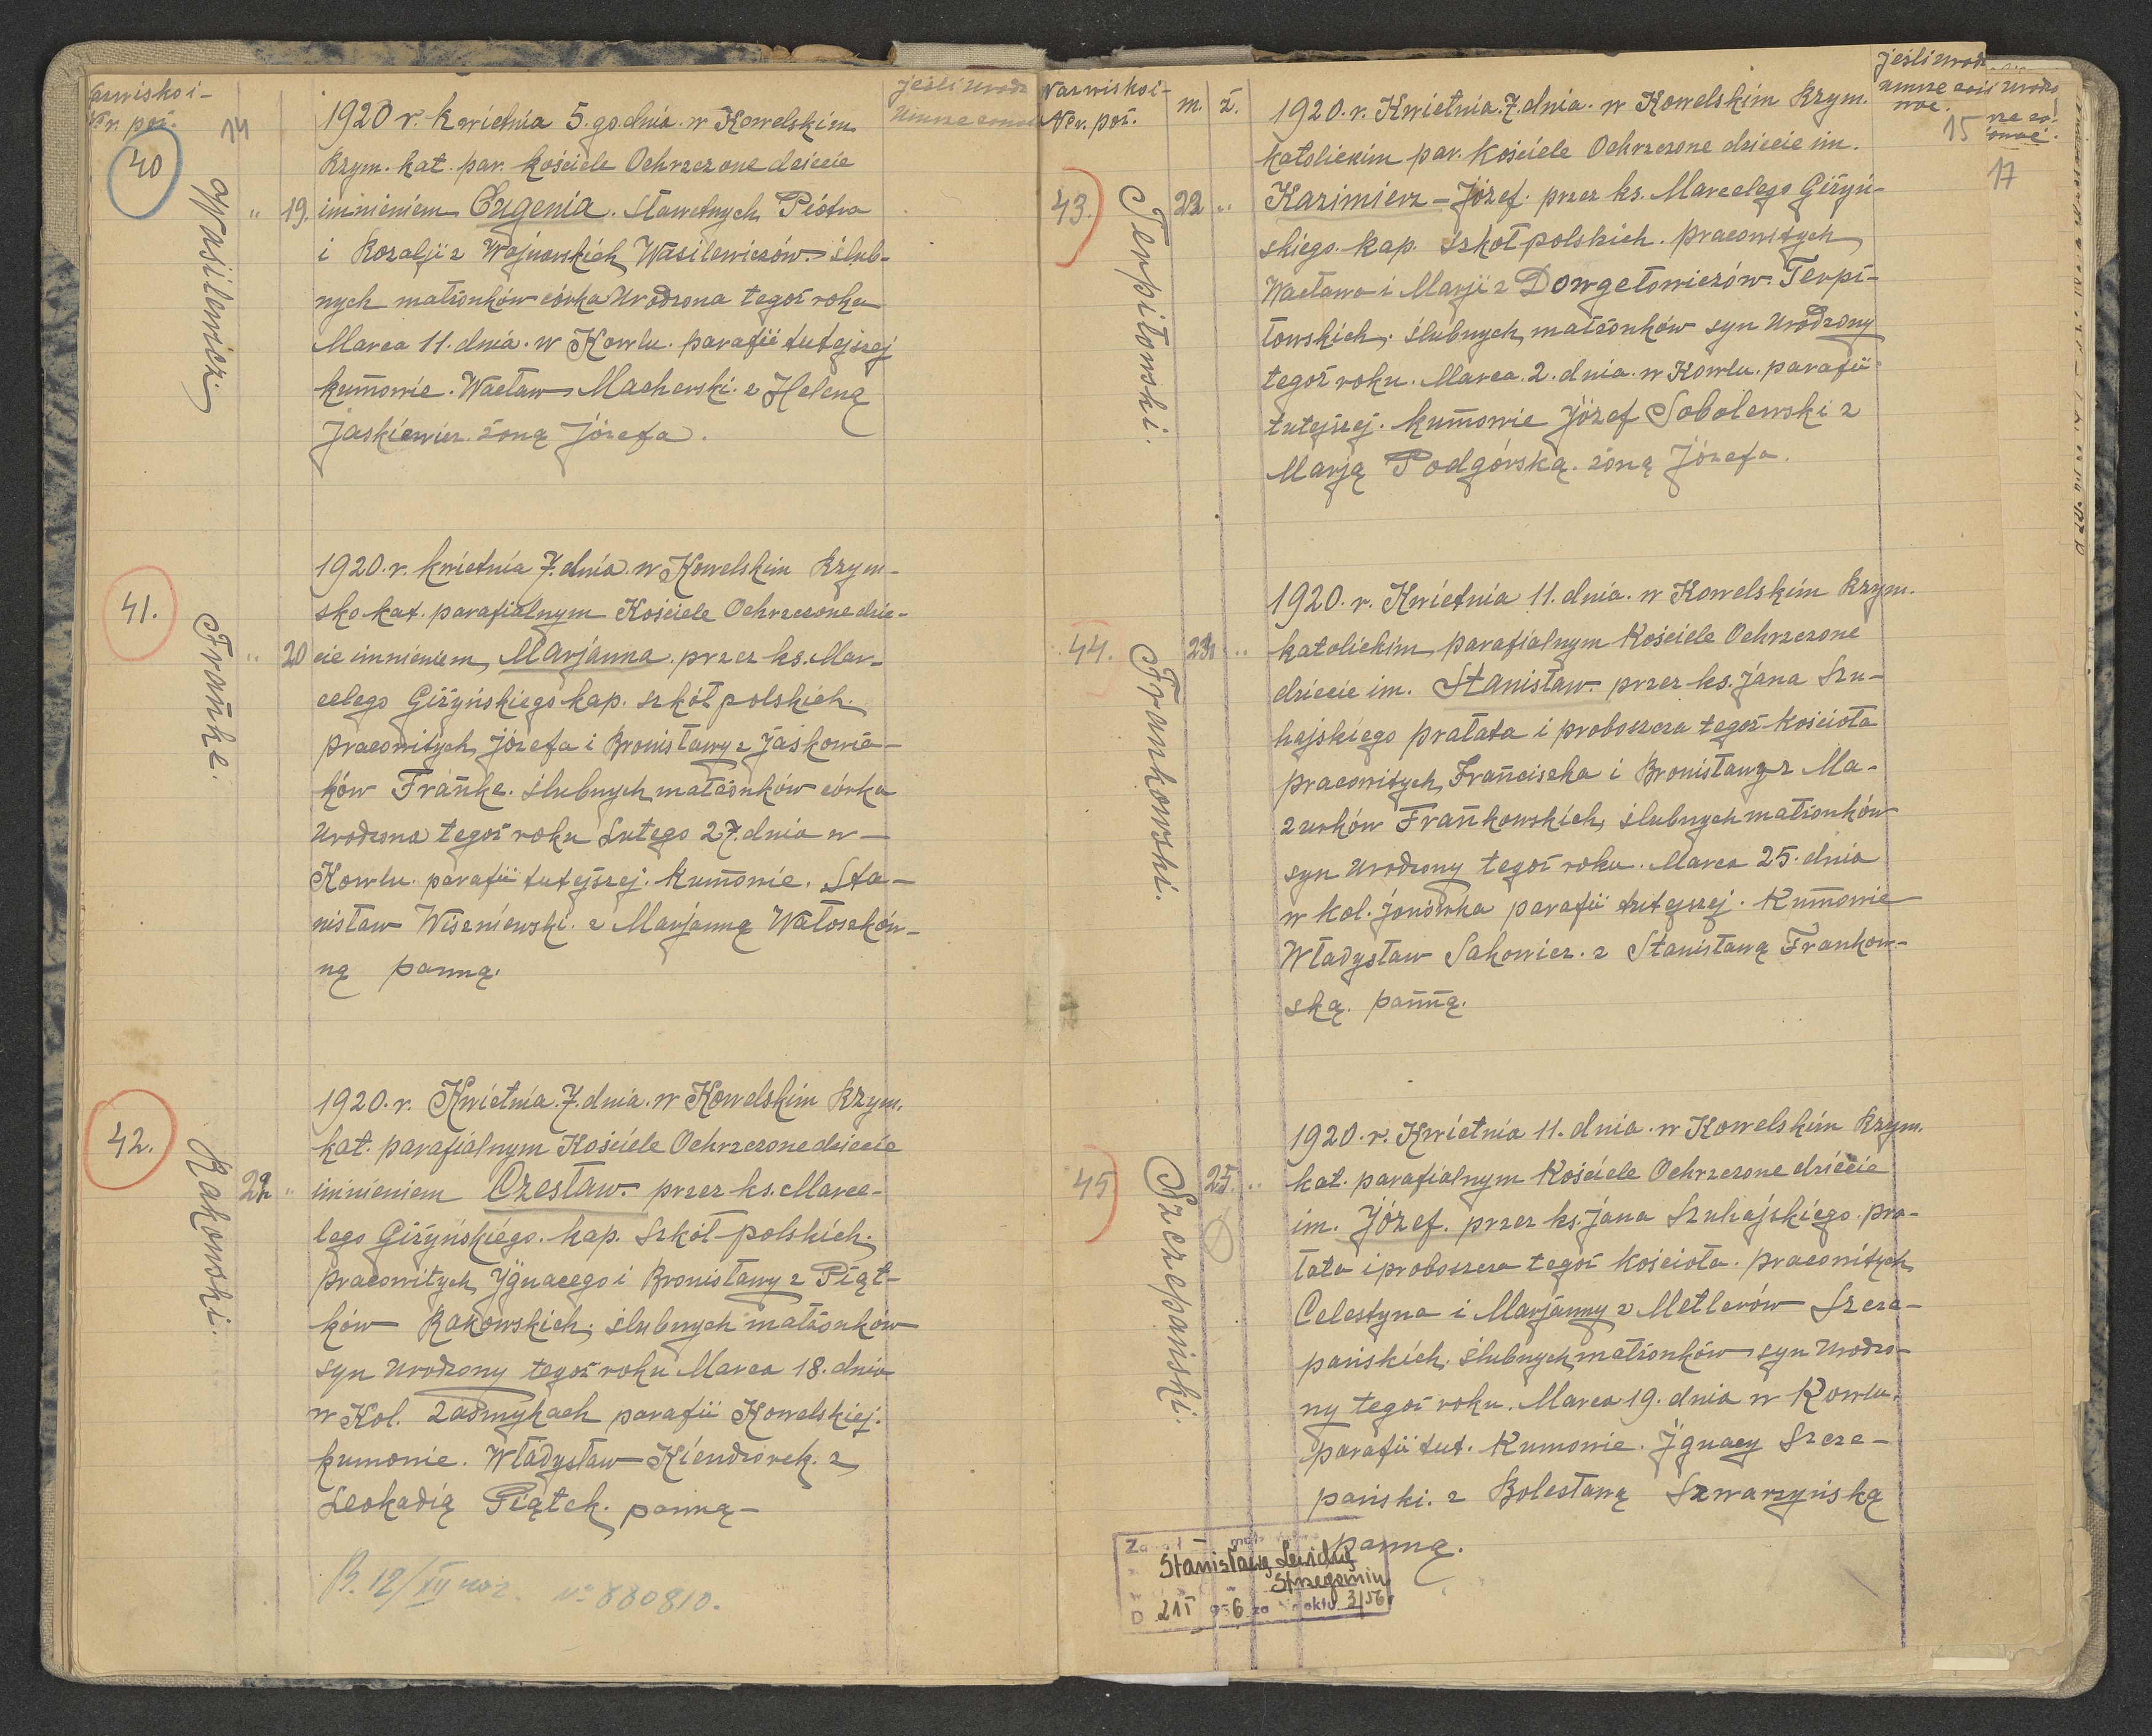 Nazwisko i
Nr. poż.
14
40
Wasilewicz.
"
19.
1920 r. kwietnia 5. go dnia. w Kowelskim
Rzym. kat. par. kościele Ochrzczone dziecie
imnieniem Eugenia. Sławetnych Piótra
i Rozalji z Wojnowskich Wasilewiczów. ślub-
nych małżonków córka Urodzona tegoż roku
Marca 11. dnia. w Kowlu. parafii tutejszej
kumowie. Wacław Macherski. z Heleną
Jaskiewicz. żoną Józefa.
41.
Franke.
"
20
1920. r. kwietnia 7. dnia. w Kowelskim Rzym-
sko kat. parafialnym Kościele Ochrzczone dzie-
cie imnieniem Marjanna. przez ks. Mar-
celego Giżyńskiego kap. szkół polskich.
pracowitych Józefa i Bronisławy z Jaskowia-
ków Franke. ślubnych małżonków córka
Urodzona tegoż roku Lutego 27. dnia w -
Kowlu. parafii tutejszej. Kumowie. Sta-
nisław Wiszniewski. z Marjanną Watoszków-
ną panną.
42.
Rakowski.
"
1920. r. Kwietnia. 7. dnia. w Kowelskim Rzym.
kat. parafialnym Kościele Ochrzczone dziecie
imnieniem Czesław. przez ks. Marce-
lego Giżyńskiego. kap. Szkół polskich.
pracowitych Ignacego i Bronisławy z Piąt-
ków Rakowskich. ślubnych małżonków
syn Urodzony tegoż roku Marca 18. dnia
w Kol. Zadmykach parafii Kowelskiej.
kumowie. Władysław Kiendzorek. z
Leokadią Piątek. panną -
No 880810.
Nazwisko i-
Nr. poż.
m.
ż.
15
17
43.
Terpiłowski.
22
"
1920. r. Kwietnia. 7. dnia. w Kowelskim Rzym.
katolickim par. Kościele Ochrzczone dziecie im.
Kazimierz - Józef. przez ks. Marcelego Giżyń-
skiego. kap. szkół polskich. pracowitych
Wacława i Marji z Dowgetowiczów. Terpi-
łowskich. ślubnych małżonków syn Urodzony
tegoż roku. Marca. 2. dnia. w Kowlu. parafii
tutejszej. kumowie Józef Sobolewski z
Marją Podgórską. żoną Józefa.
44.
Frankowski.
"
1920. r. Kwietnia 11. dnia. w Kowelskim Rzym.
katolickim parafialnym Kościele Ochrzczone
dziecie im. Stanisław. przez ks. Jana Szu-
hajskiego prałata i proboszcza tegoż Kościoła
pracowitych Franciszka i Bronisławy z Ma-
zurków Frankowskich, ślubnych małżonków
syn Urodzony tegoż roku. Marca 25. dnia
w kol. Janówka parafii tutejszej. Kumowie
Władysław Sakowicz. z Stanisławą Frankow-
ską. panną.
45
Szczepański.
25.
"
1920. r. Kwietnia 11. dnia. w Kowelskim Rzym.
kat. parafialnym Kościele Ochrzczone dziecie
im. Józef. przez ks. Jana Szuhajskiego. pra-
łata i proboszcza tegoż Kościoła. pracowitych
Celestyna i Marjanny z Metlerów Szcze-
pańskich. ślubnych małżonków syn Urodzo-
ny tegoż roku. Marca 19. dnia w Kowlu.
parafii tut. Kumowie. Ignacy Szcze-
pański. z Bolesławą Szwarzyńską
panną.
Stanisławą
Strzegomiu
3/56